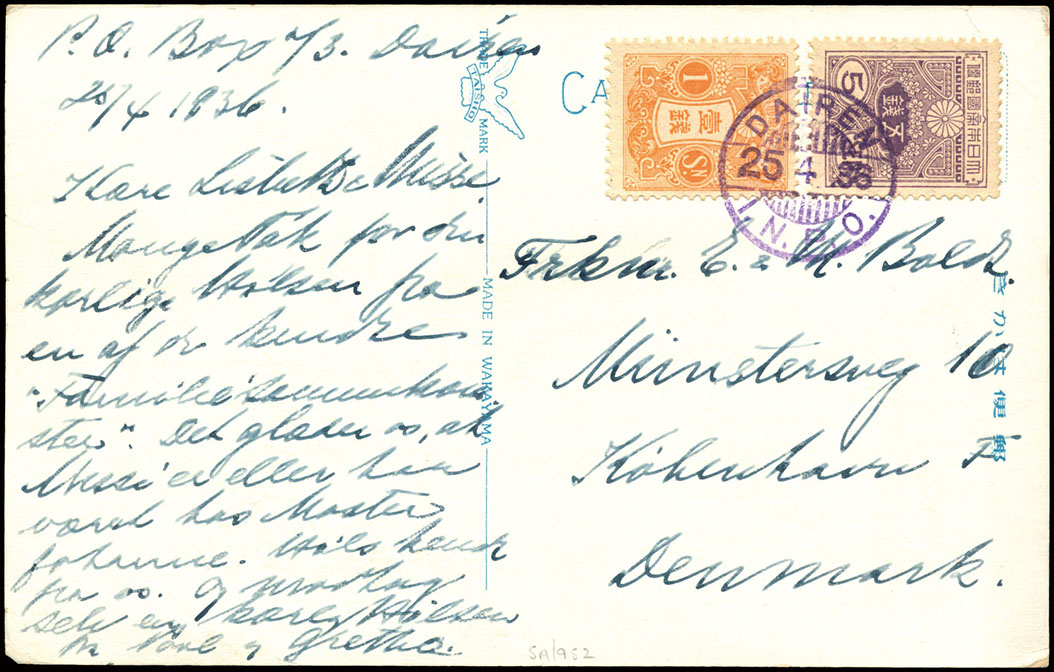 P.O. Box 73. Dairen
20/4 1936.
Kære Lisbet & Missi
Mange Tak for den
kærlige Hilsen fra
en af de kendte
"Familiesammenkom-
ster". Det glæder os, at
Missi er eller har
været hos Moster
Johanne. Hils hende
fra os. Og modtag
selv en kærlig Hilsen
fra Poul & Grethe.
TRADE MARK
TAISHO
MADE IN WAKAYAMA
CA
1
壹
錢
SN
5
五
錢
大日本帝國郵便
DAIREN
25 4 36
I.N.P.O.
Frkn. E. & M. Boldt.
Münstersvej 10
København F
Denmark.
きがは便郵
SA/952